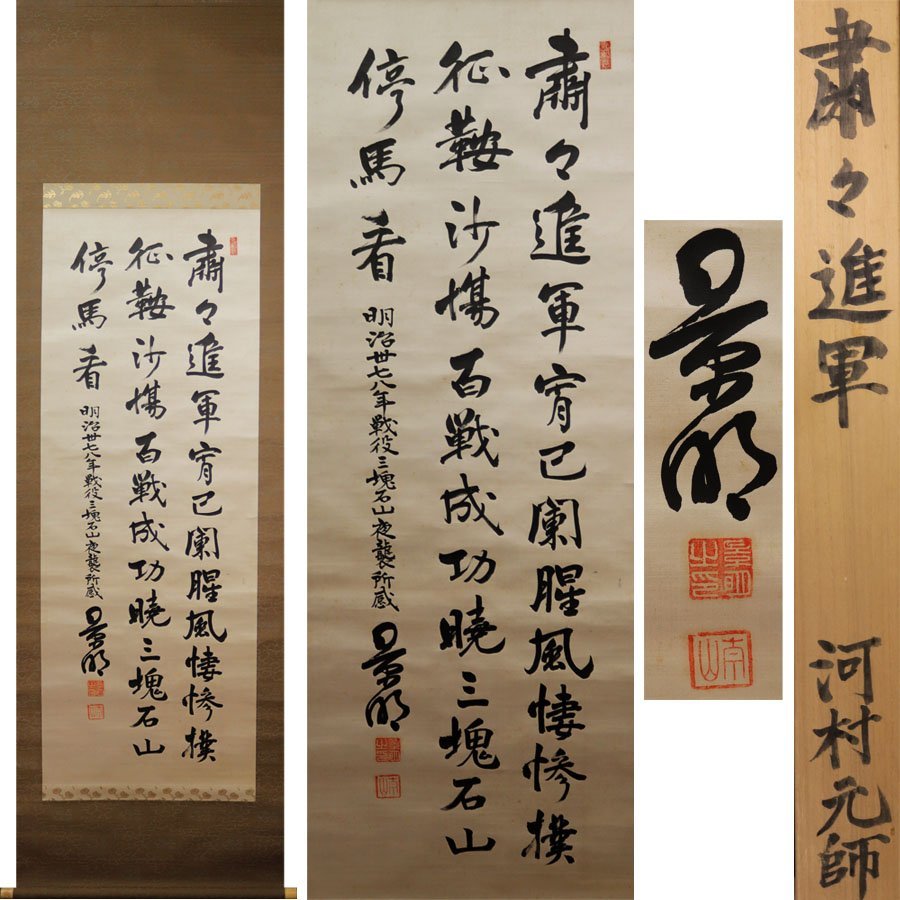 肅々進軍宵已闌腥風悽惨撲
征鞍沙場百戦成功曉三塊石山
停馬看 明治卅七八年戰役三塊石山夜襲所感 景明
肅々進軍宵已闌腥風悽惨撲
征鞍沙場百戦成功曉三塊石山
停馬看 明治卅七八年戰役三塊石山夜襲所感 景明
景明
景明之印
南山
肅々進軍 河村元師